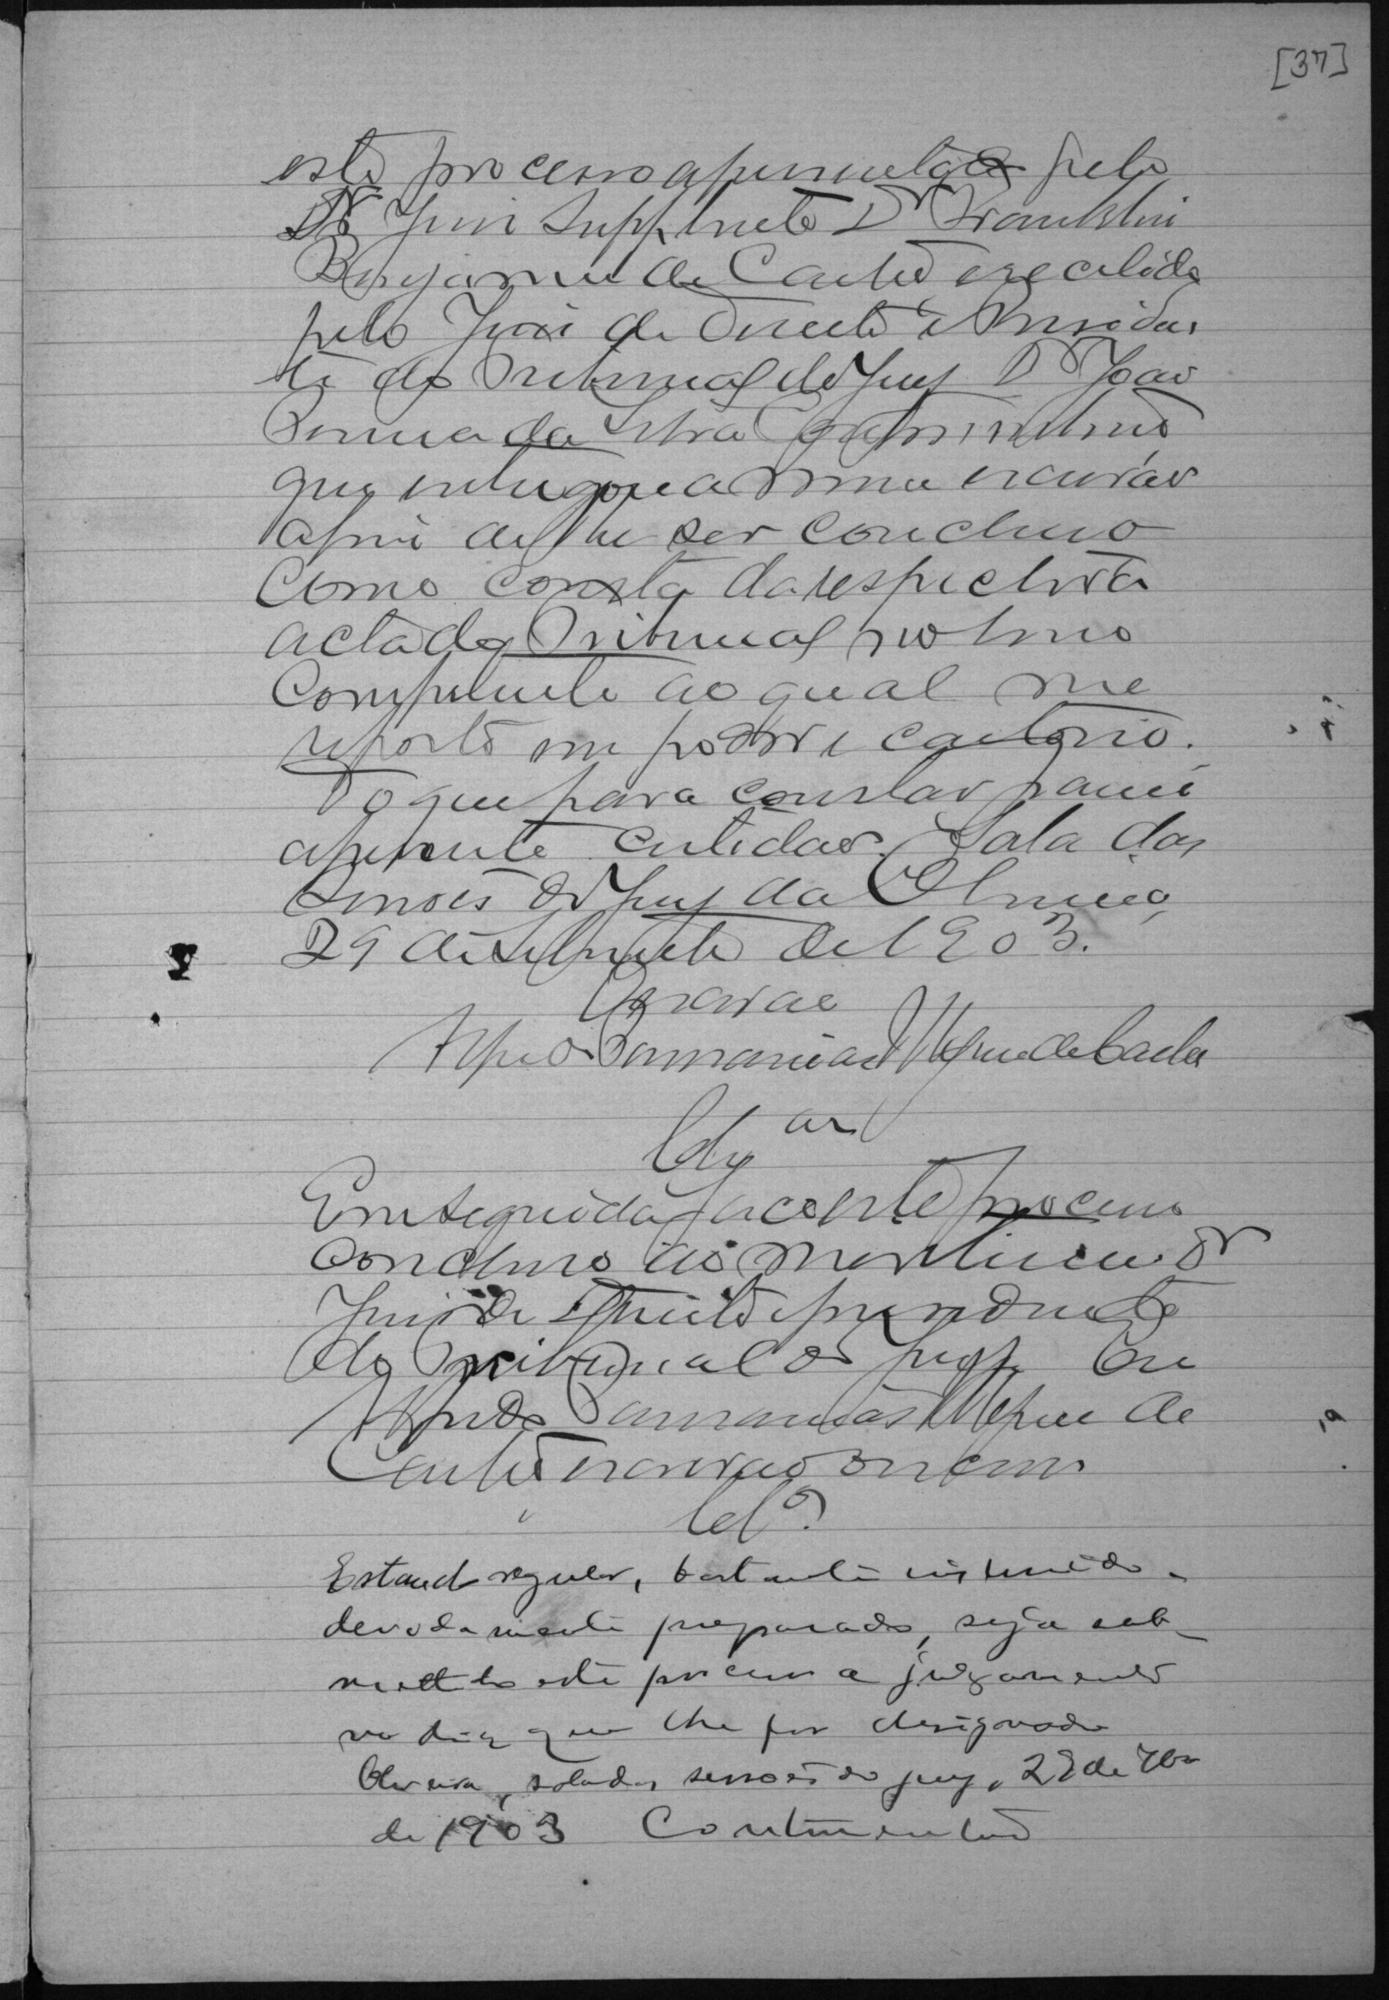 [37]
este processo apresentado pelo
Dr Juiz Supplente Dr Franklin
Benjamin de Castro e recebido
pelo Juiz de Direito e Presiden
te do Tribunal do Jury Dr João
da Silva
que entregou a mim escrivão
afim de lhe ser concluso
como consta da respectiva
acta do Tribunal no livro
competente ao qual me
reporto em poder e cartorio.
Do que para constar passei
a presente certidão. Sala das
Sessões do Jury da Oliveira,
29 de Setembro de 1903.
O Escrivão
de Castro
Clsam
Em seguida faco este processo
concluso ao Meritissimo Dr
Juiz de Direito e presidente
do Tribunal do Jury. Eu
de
Castro escrivão o escrevi
Clo.
Estando regular, bastante instruido e
devidamente preparado, seja sub-
mettido este processo a julgamento
no dia que lhe for designado
Oliveira, sala das sessões do jury, 29 de 7bro
de 1903